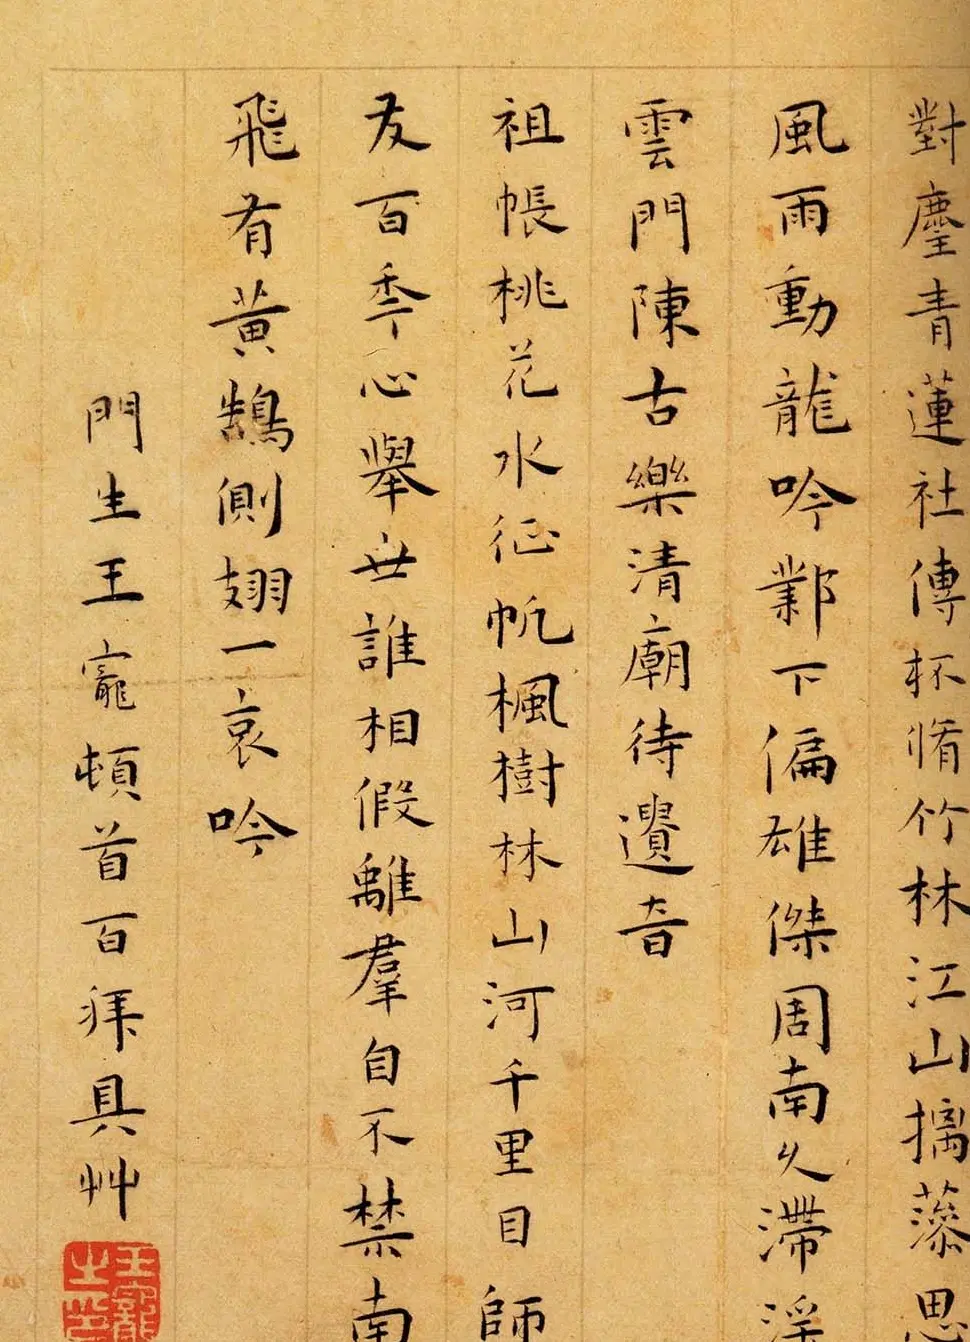 對麈青蓮社傳杯脩竹林江山摛藻思
風雨動龍吟鄴下偏雄傑周南久滯淫
雲門陳古樂清廟待遺音
祖帳桃花水征帆楓樹林山河千里目師
友百年心舉世誰相假離羣自不禁南
飛有黃鵠側翅一哀吟
門生王寵頓首百拜具艸
王寵